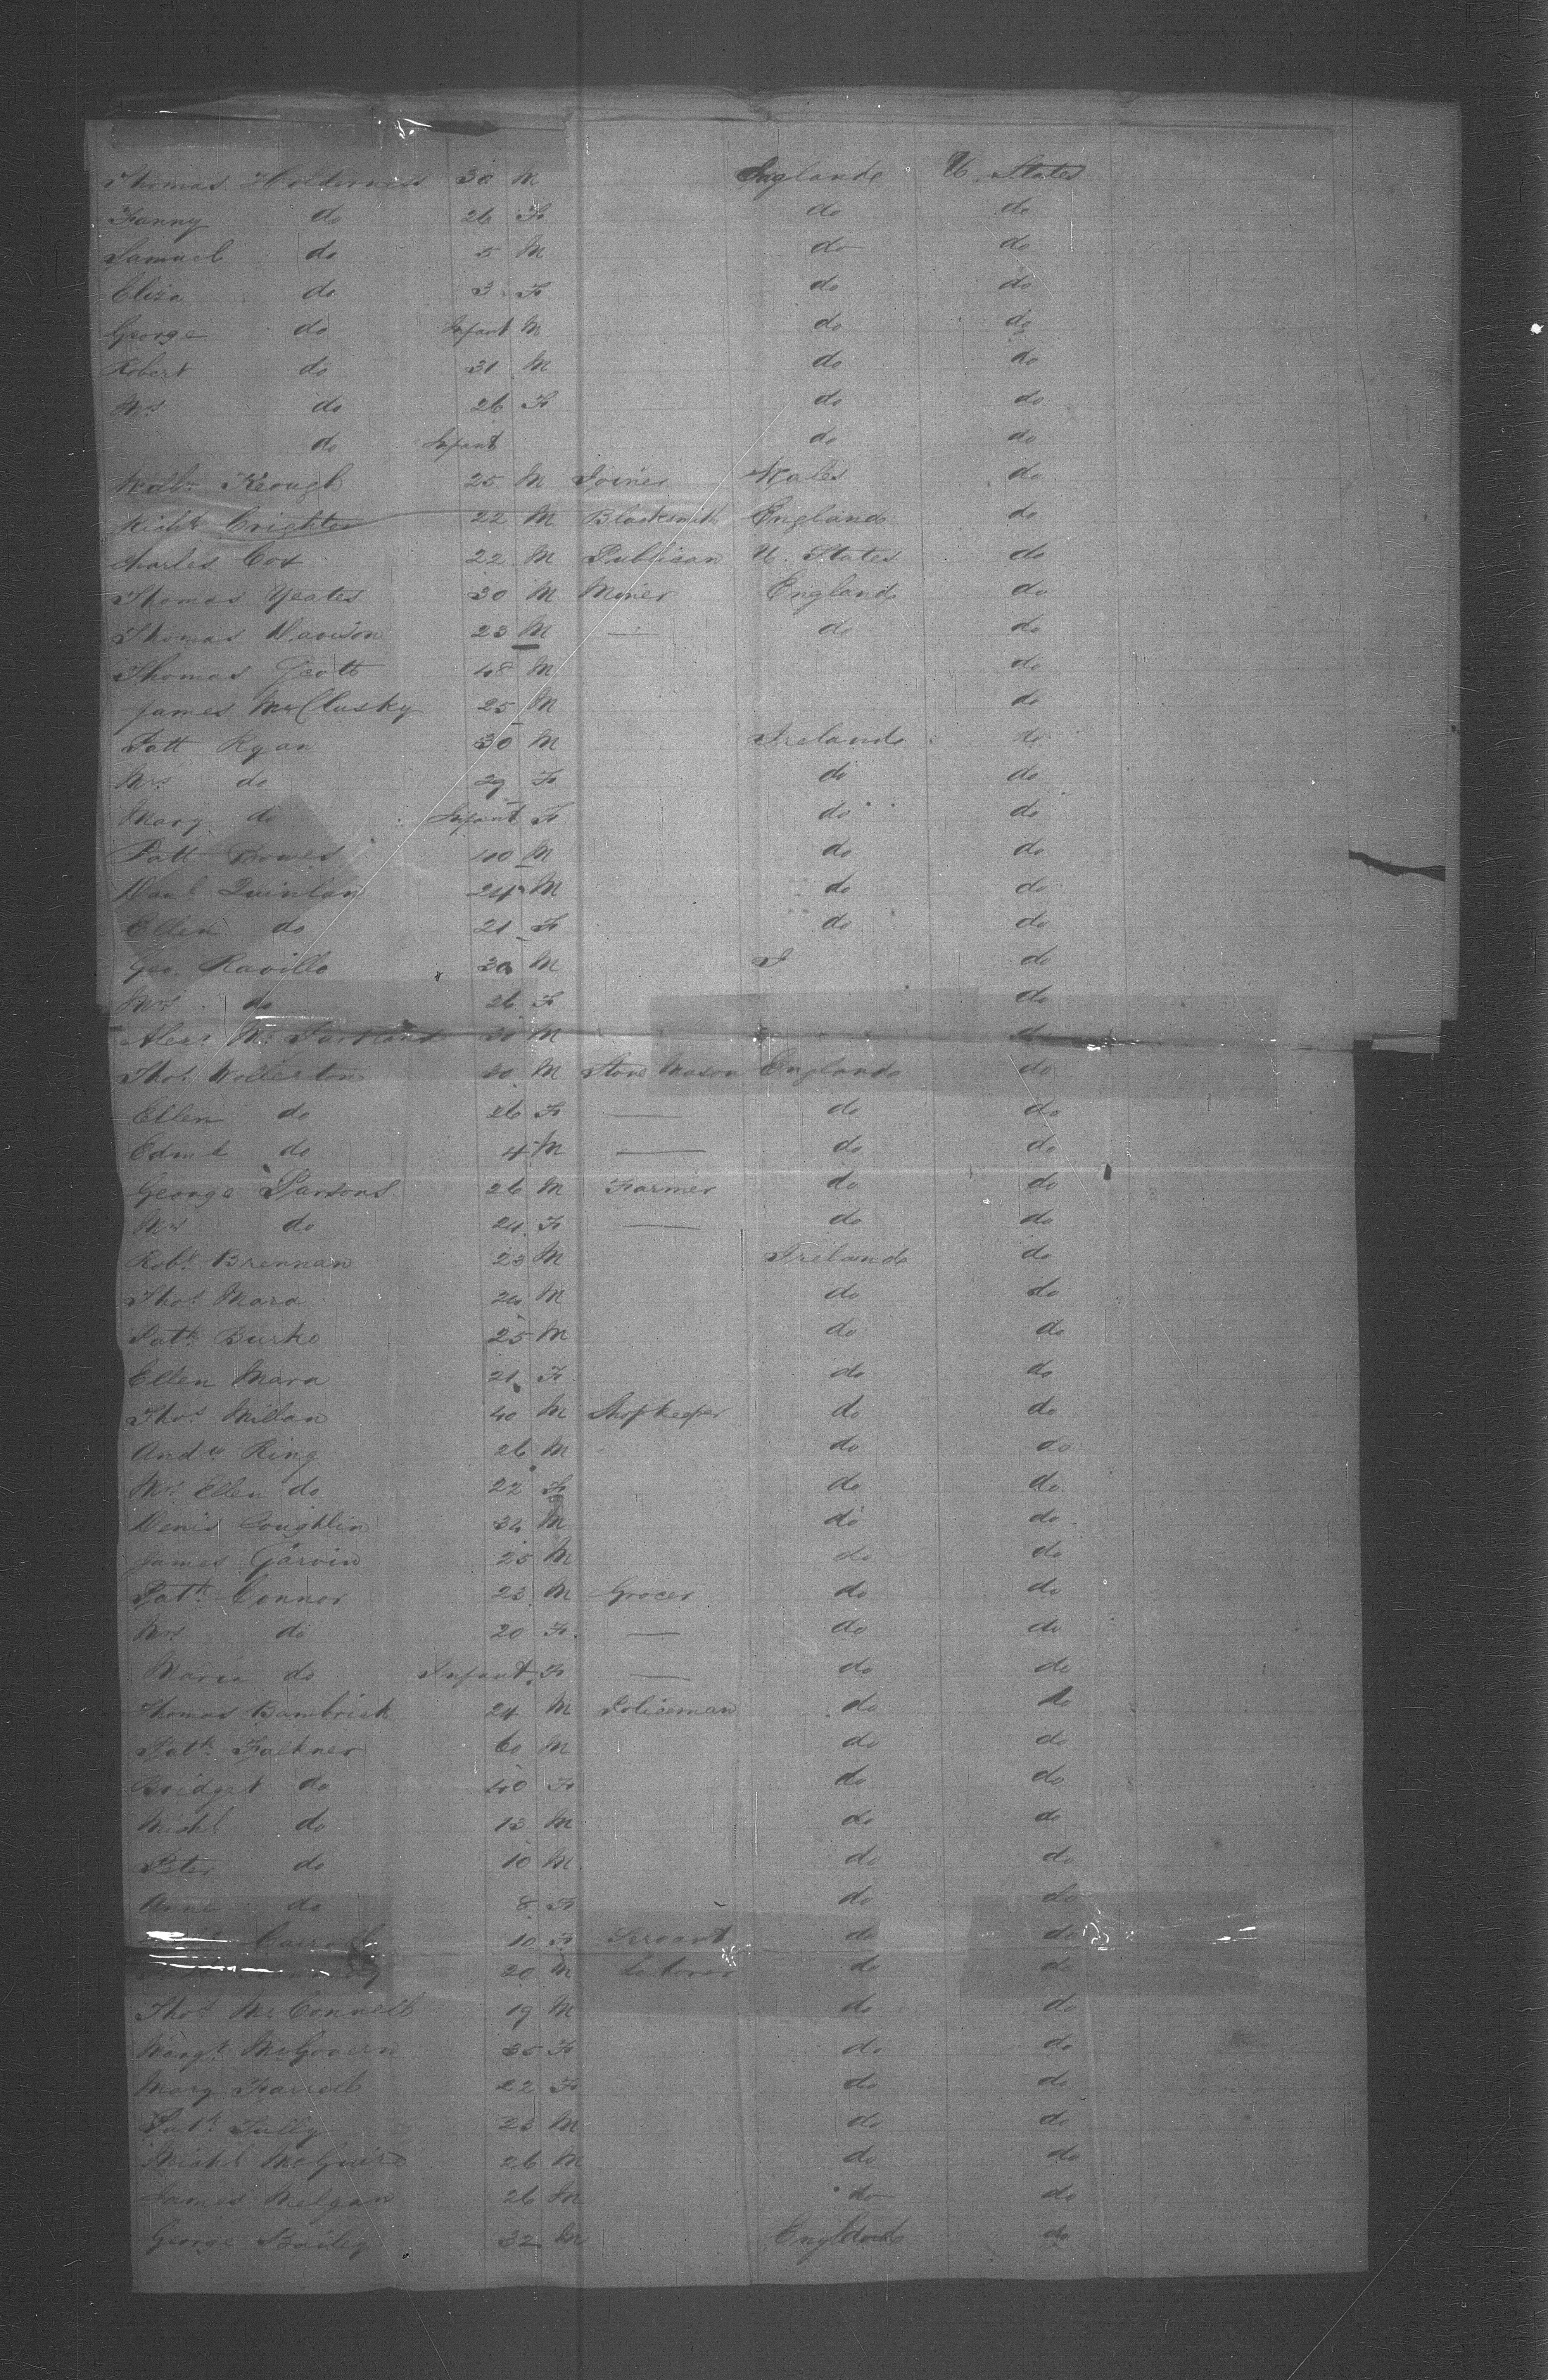 Thomas Holterness 30 M England U. States
Fanny do 26 F do do
Samuel do 5 M do do
Eliza do 3 F do do
George do Infant M do do
Robert do 31 M do do
Mrs do 26 F do do
do Infant do do
Willm Keough 25 M Joiner Wales do
Richd Crighton 22 M Blacksmith England do
Charles Cox 22 M Publican U. States do
Thomas Yeates 30 M Miner England do
Thomas Davison 23 M — do do
Thomas Scott 48 M do
James McClusky 25 M do
Patt Ryan 30 M Ireland do
Mrs do 29 F do do
Mary do Infant F do do
Patt Bowes 40 M do do
Danl Quinlan 24 M do do
Ellen do 21 F do do
Geo. Raville 30 M I do
Mrs do 26 F do
Alexr Mc Partland M do
Thos Wollerton 30 M Stone Mason England do
Ellen do 26 F — do do
Edmd do 4 M — do do
George Parsons 26 M Farmer do do
Mrs do 24 F — do do
Robt Brennan 23 M Ireland do
Thos Mara 24 M do do
Patk Burke 25 M do do
Ellen Mara 21 F do do
Thos Millan 40 M Shopkeeper do do
Andw Ring 26 M do do
Mrs Ellen do 22 F do do
Denis Coughlin 34 M do do
James Garvin 25 M do do
Patk Connor 23 M Grocer do do
Mrs do 20 F — do do
Maria do Infant F — do do
Thomas Bambrick 24 M Policeman do do
Patk Falkner 60 M do do
Bridget do 40 F do do
Michl do 13 M do do
Peter do 10 M do do
Anne do 8 F do do
Carroll 10 F Servant do do
20 M Laborer do do
Thos McConnell 19 M do do
Margt McGovern 35 F do do
Mary Farrell 22 F do do
Patk Tully 23 M do do
Michl McGuire 26 M do do
James Melgan 26 M do do
George Bailey 32 M England do